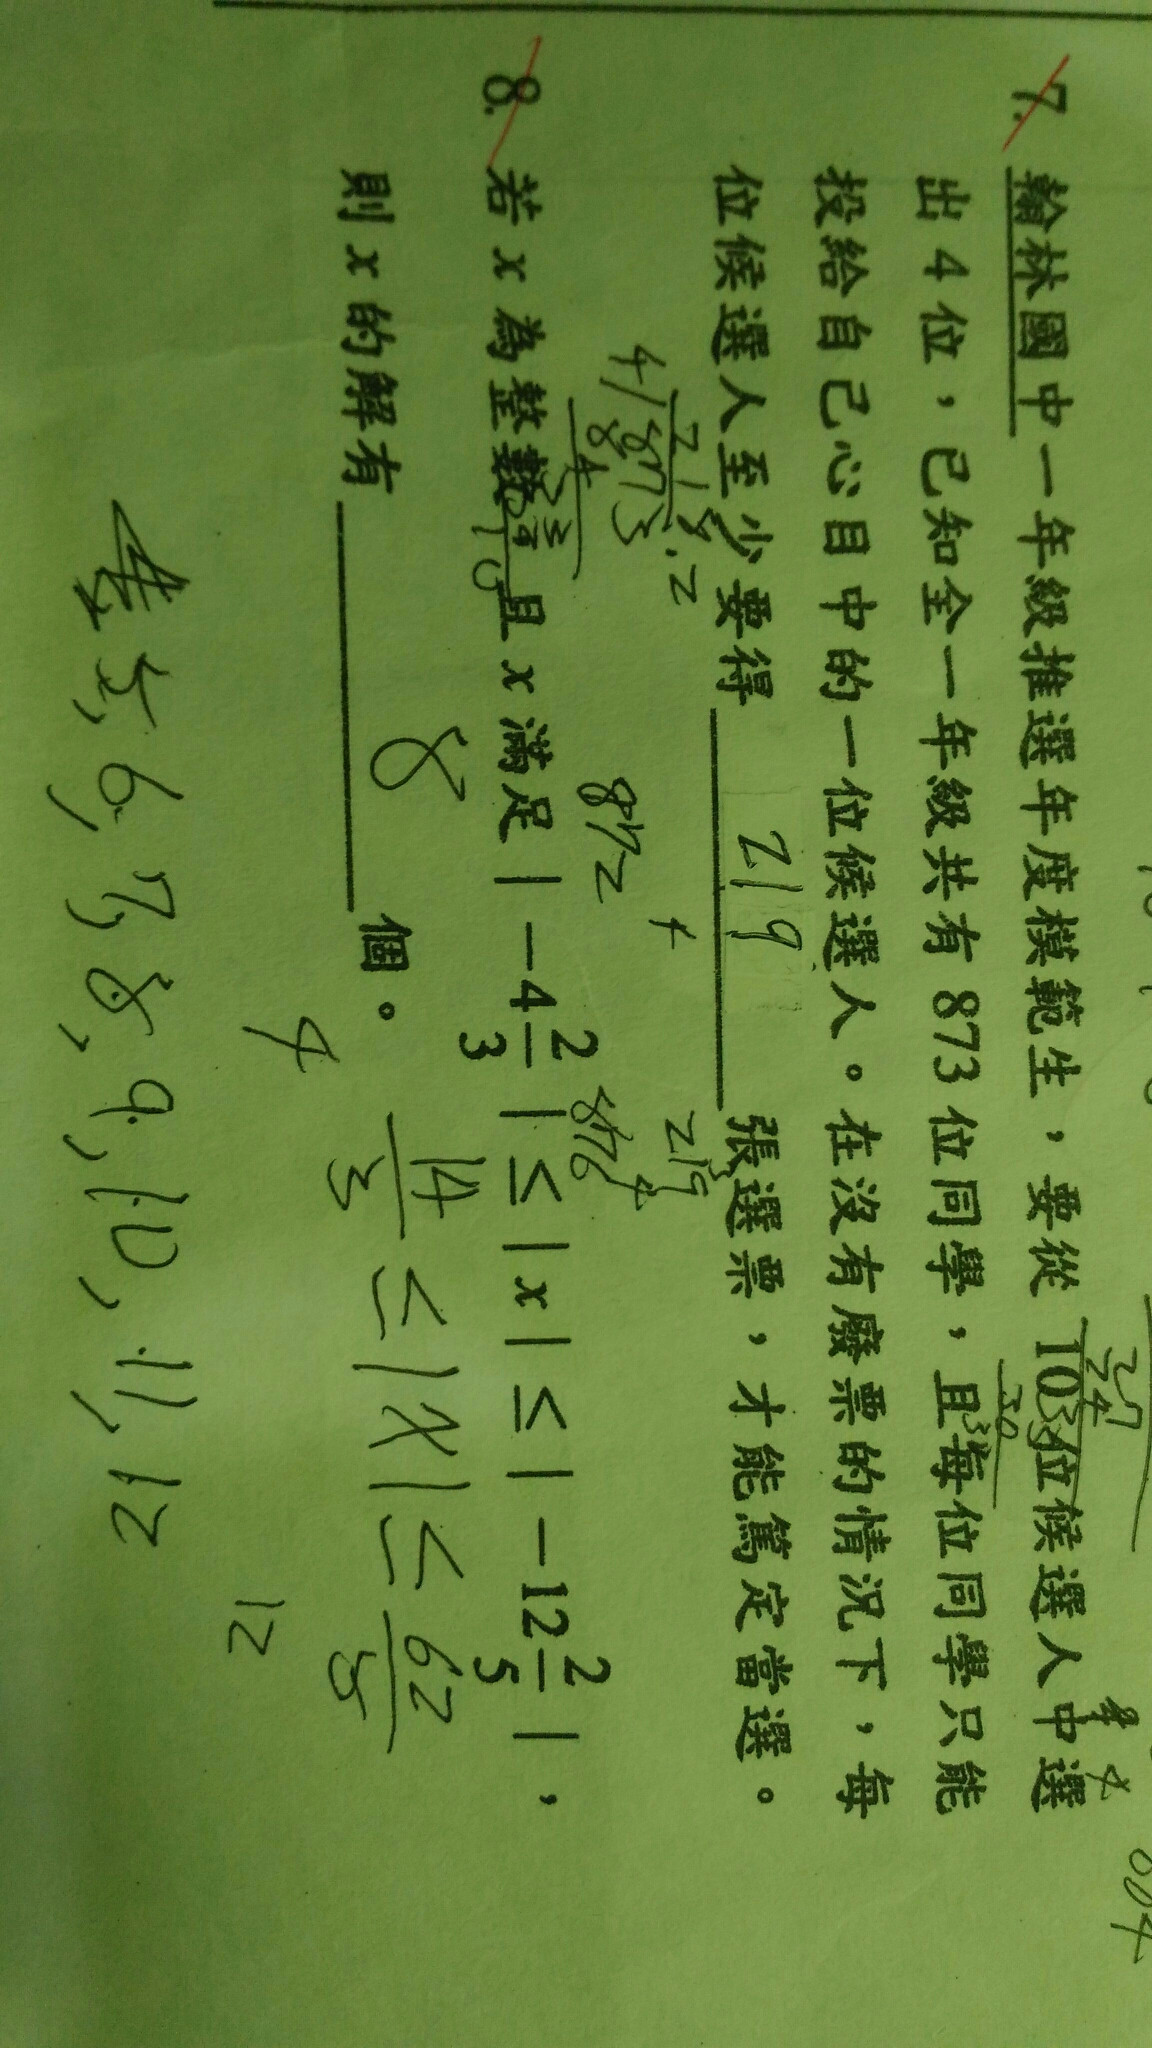 7. 翰林國中一年級推選年度模範生，要從 103位候選人中選
出 4 位，已知全一年級共有 873 位同學，且每位同學只能
投給自己心目中的一位候選人。在沒有廢票的情況下，每
位候選人至少要得 219 張選票，才能篤定當選。
4/873
218.2
84
33
872
219
4
876
8. 若 x 為整數，且 x 滿足 | -4 2/3 | ≤ | x | ≤ | -12 2/5 |，
則 x 的解有 8 個。
14/3 ≤ |x| ≤ 62/5
4
12
5, 6, 7, 8, 9, 10, 11, 12